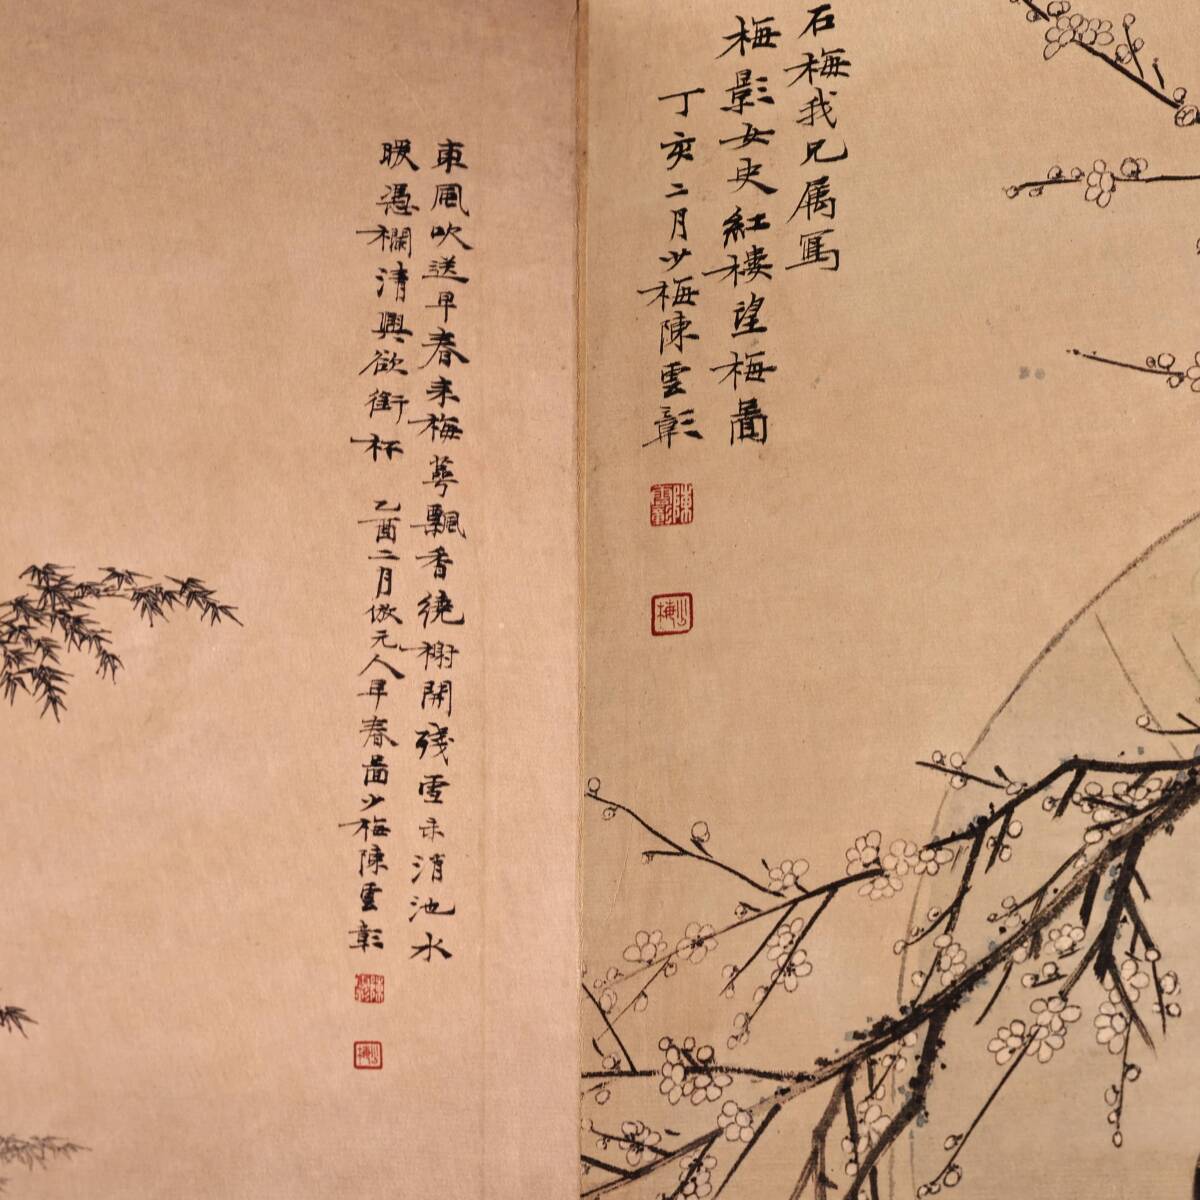 石梅我兄属写
梅影女史紅楼望梅圖
丁亥二月少梅陳雲彰
陳雲彰
少梅
東風吹送早春来梅萼飄香繞榭開殘雪未消池水
暖憑欄清興欲銜杯 乙酉二月倣元人早春圖少梅陳雲彰
陳雲彰
少梅